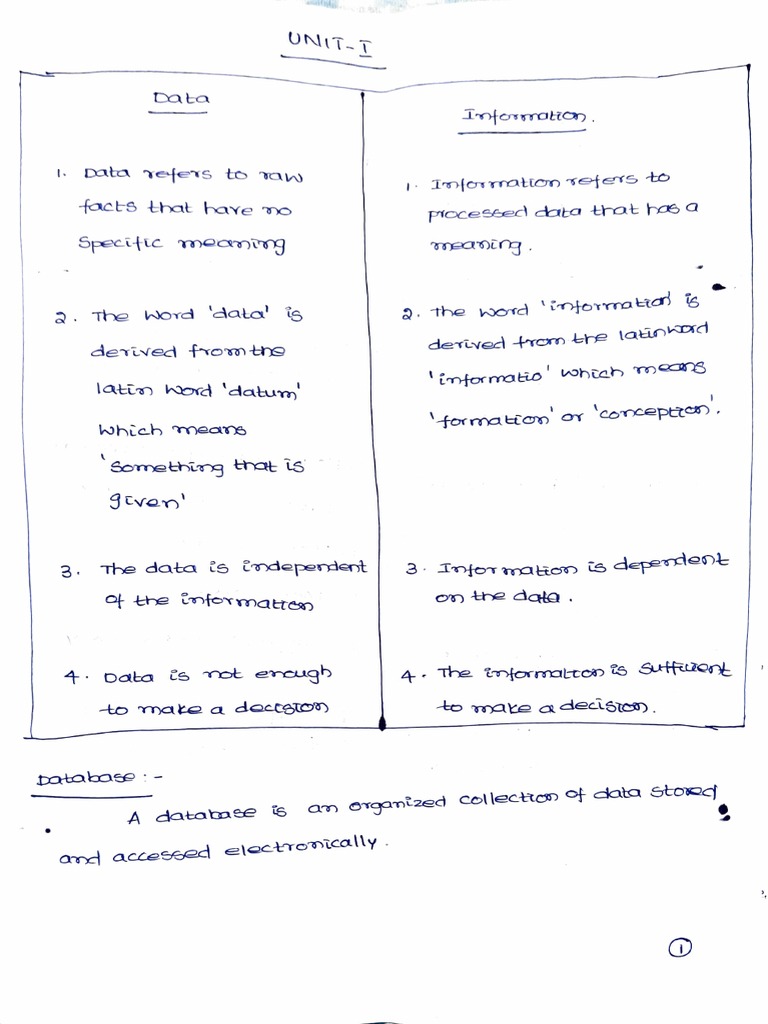 UNIT-I
Data
1. Data refers to raw
facts that have no
specific meaning
2. The word 'data' is
derived from the
latin word 'datum'
which means
'something that is
given'
3. The data is independent
of the information
4. Data is not enough
to make a decision
Information.
1. Information refers to
processed data that has a
meaning.
2. The word 'information' is
derived from the latin word
'informatio' which means
'formation' or 'conception'.
3. Information is dependent
on the data.
4. The information is sufficient
to make a decision.
Database :-
A database is an organized collection of data stored
and accessed electronically.
1